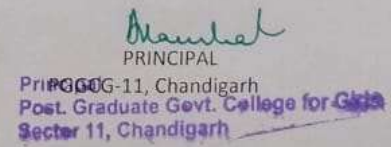 PRINCIPAL
PGGCG-11, Chandigarh
Principal
Post. Graduate Govt. College for Girls
Sector 11, Chandigarh